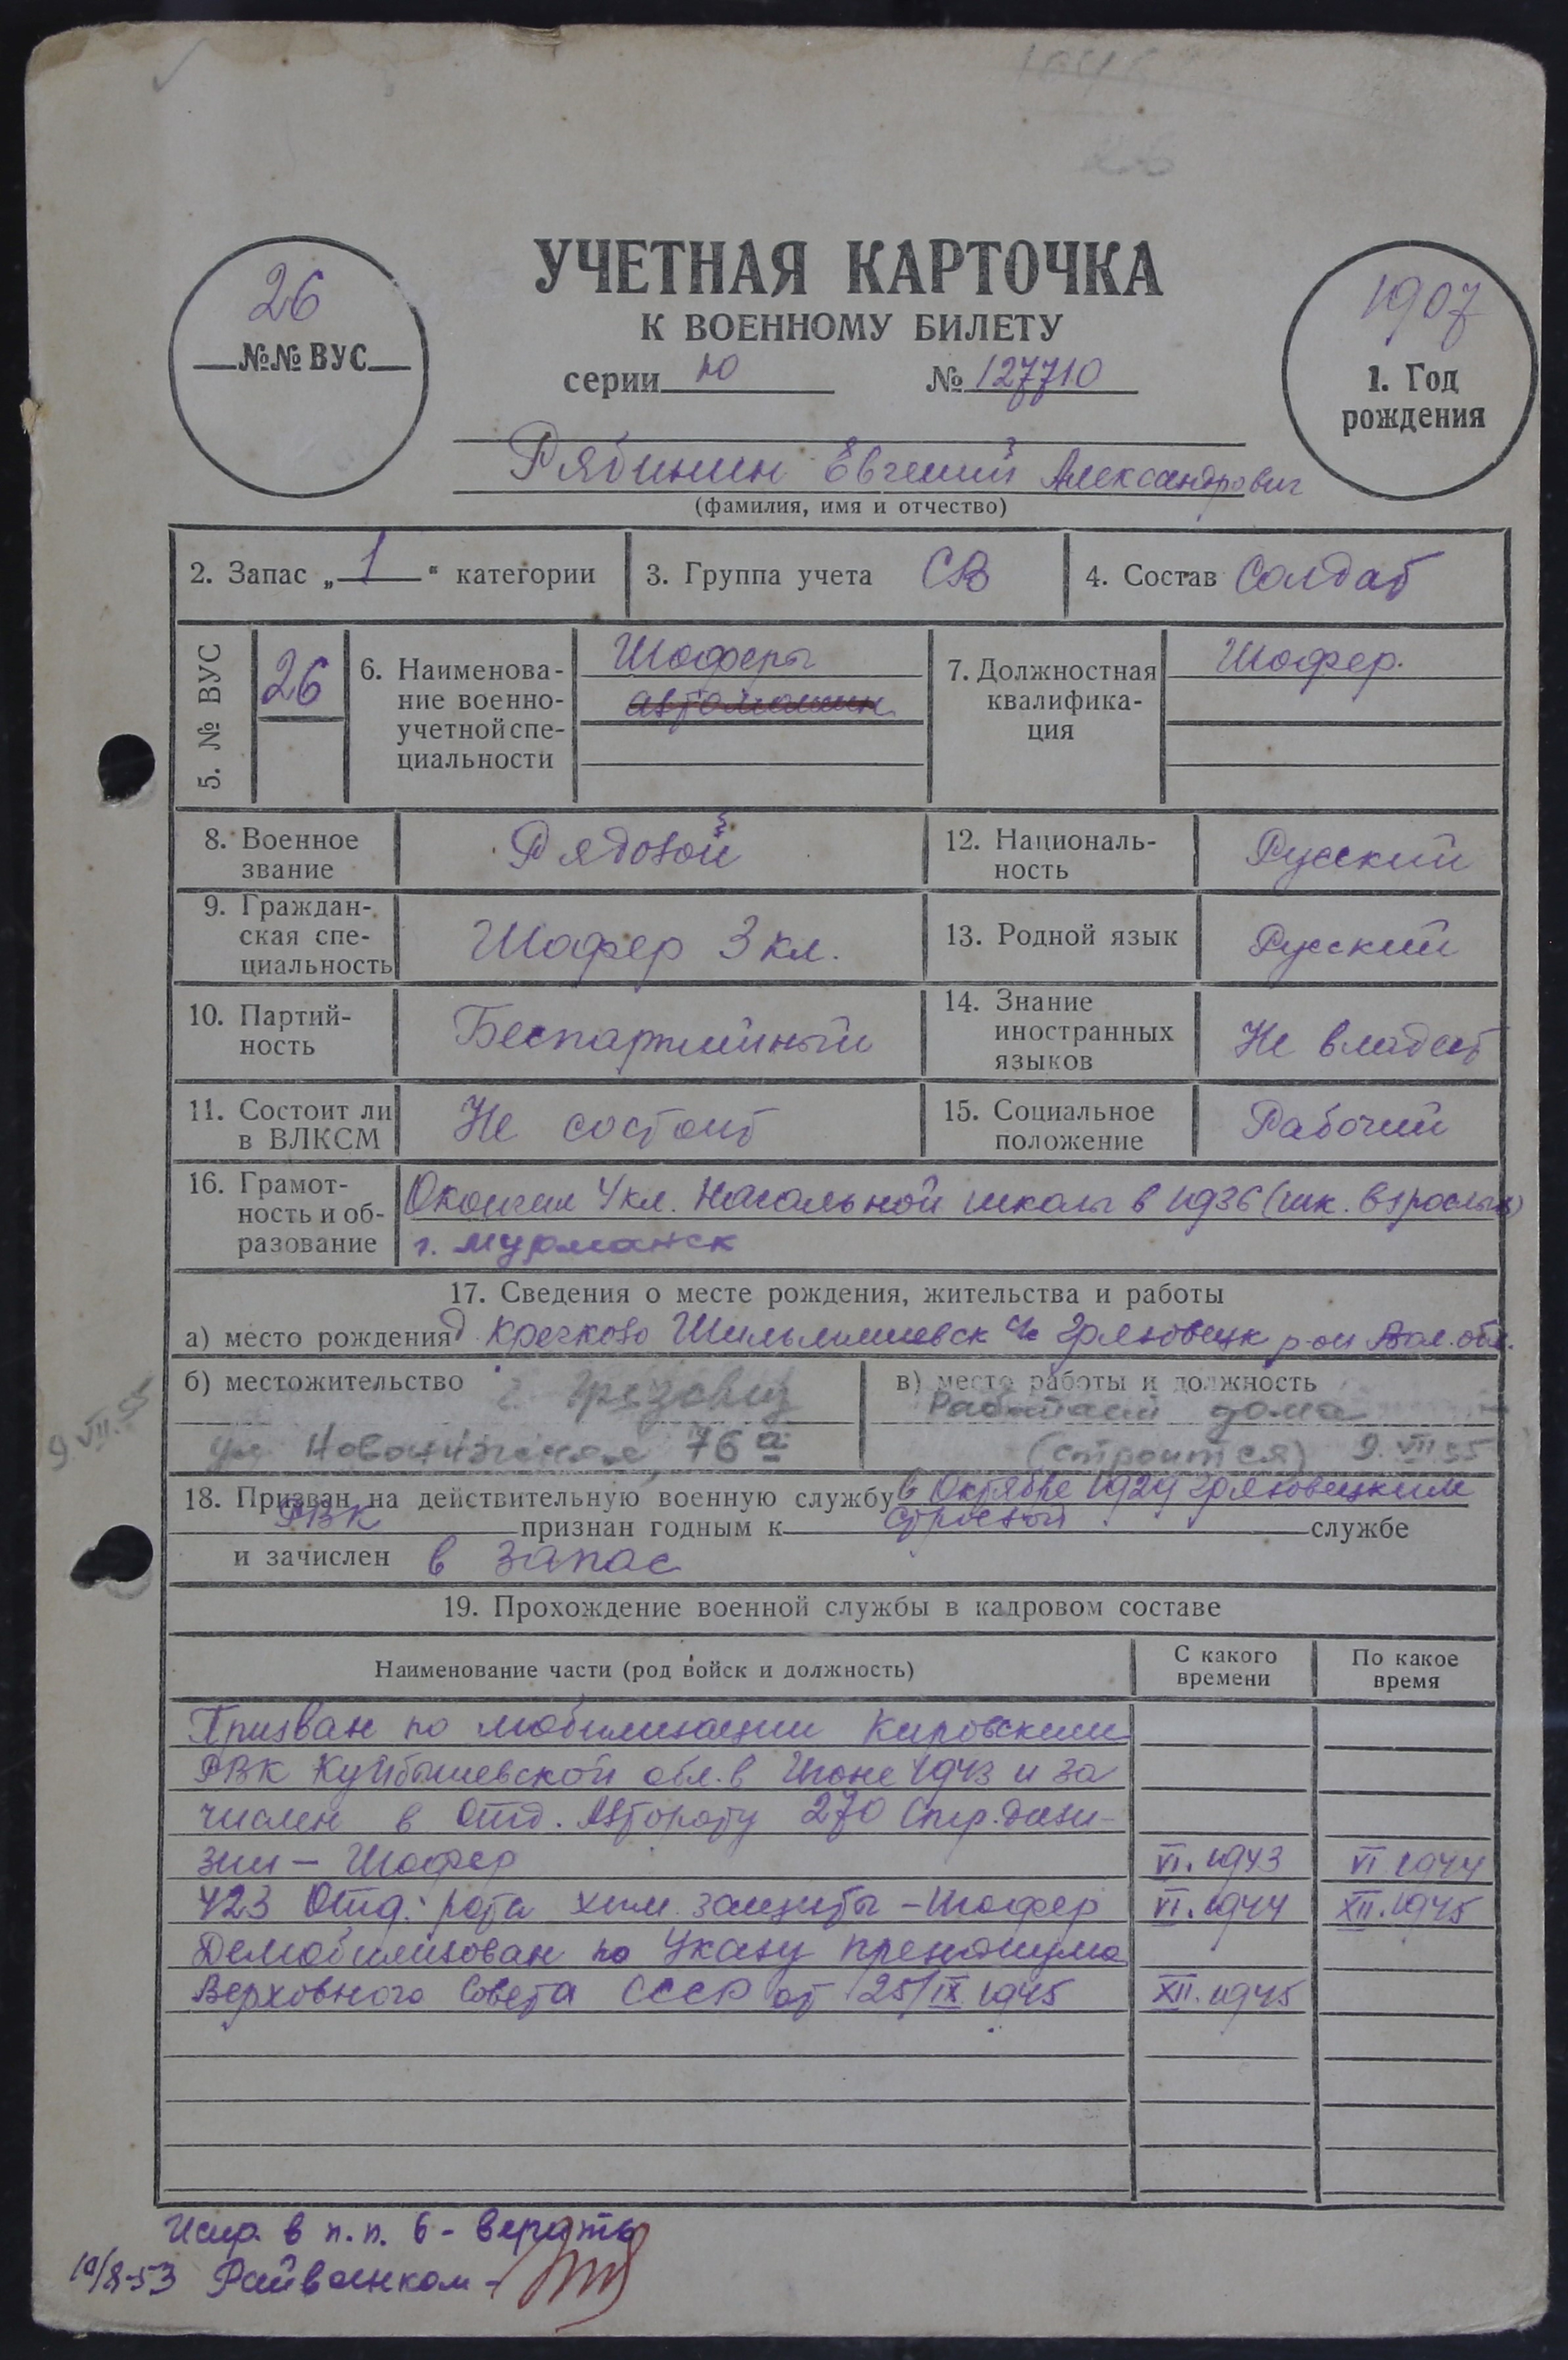 УЧЕТНАЯ КАРТОЧКА
К ВОЕННОМУ БИЛЕТУ
серии Ю № 127710
26
№№ ВУС
1907
1. Год
рождения
Рябинин Евгений Александрович
(фамилия, имя и отчество)
2. Запас „ 1 “ категории
3. Группа учета СВ
4. Состав Солдат
5. № ВУС
26
6. Наименова-
ние военно-
учетной спе-
циальности
Шоферы
автомашин
7. Должностная
квалифика-
ция
Шофер.
8. Военное
звание
Рядовой
12. Националь-
ность
Русский
9. Граждан-
ская спе-
циальность
Шофер 3 кл.
13. Родной язык
Русский
10. Партий-
ность
Беспартийный
14. Знание
иностранных
языков
Не владеет
11. Состоит ли
в ВЛКСМ
Не состоит
15. Социальное
положение
Рабочий
16. Грамот-
ность и об-
разование
Окончил 4 кл. Начальной школы в 1936 (шк. взрослых)
г. Мурманск
17. Сведения о месте рождения, жительства и работы
а) место рождения д Кречково с/с Грязовецк р-он Вол. обл.
б) местожительство г. Грязовец
ул 76а
в) место работы и должность
Работает дома
(строится) 9.VII 55
9.VII.55
18. Призван на действительную военную службу в Октябре 1929 Грязовецким
РВК признан годным к строевой службе
и зачислен в запас
19. Прохождение военной службы в кадровом составе
Наименование части (род войск и должность)
С какого
времени
По какое
время
Призван по мобилизации Кировским
РВК Куйбышевской обл. в Июне 1943 и за
числен в отд. Автороту 270 Стр. диви-
зии – Шофер VI. 1943 VI 1944
423 Отд. рота хим. защиты – Шофер VI. 1944 XII. 1945
Демобилизован по Указу президиума
Верховного Совета СССР от 25/IX 1945 XII. 1945
Испр. в п.п. 6 - верить
10/8-53 Райвоенком -